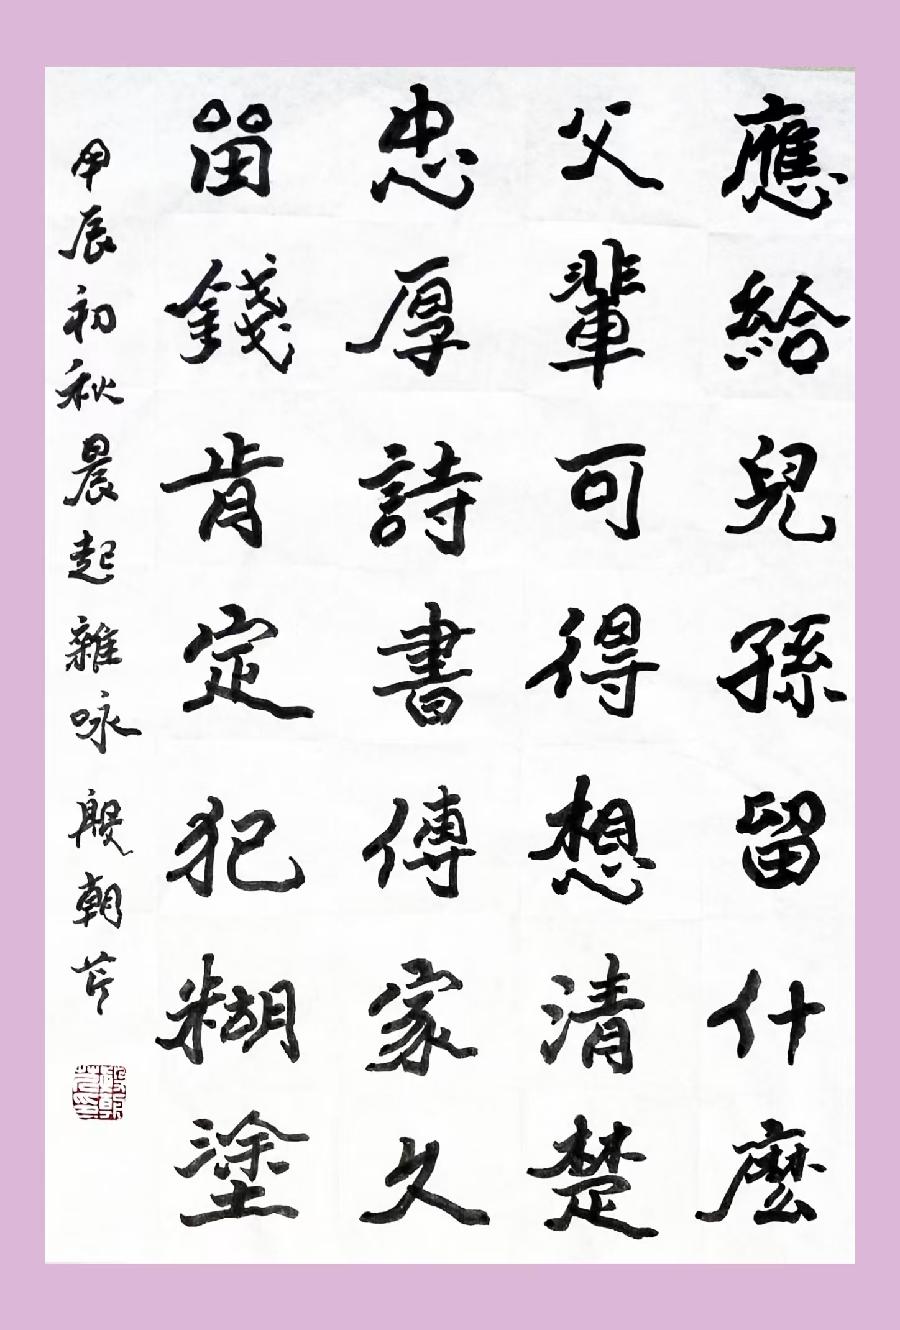 應給兒孫留什麼
父輩可得想清楚
忠厚詩書傳家久
畱錢肯定犯糊塗
甲辰初秋晨起雜咏 殷朝芹